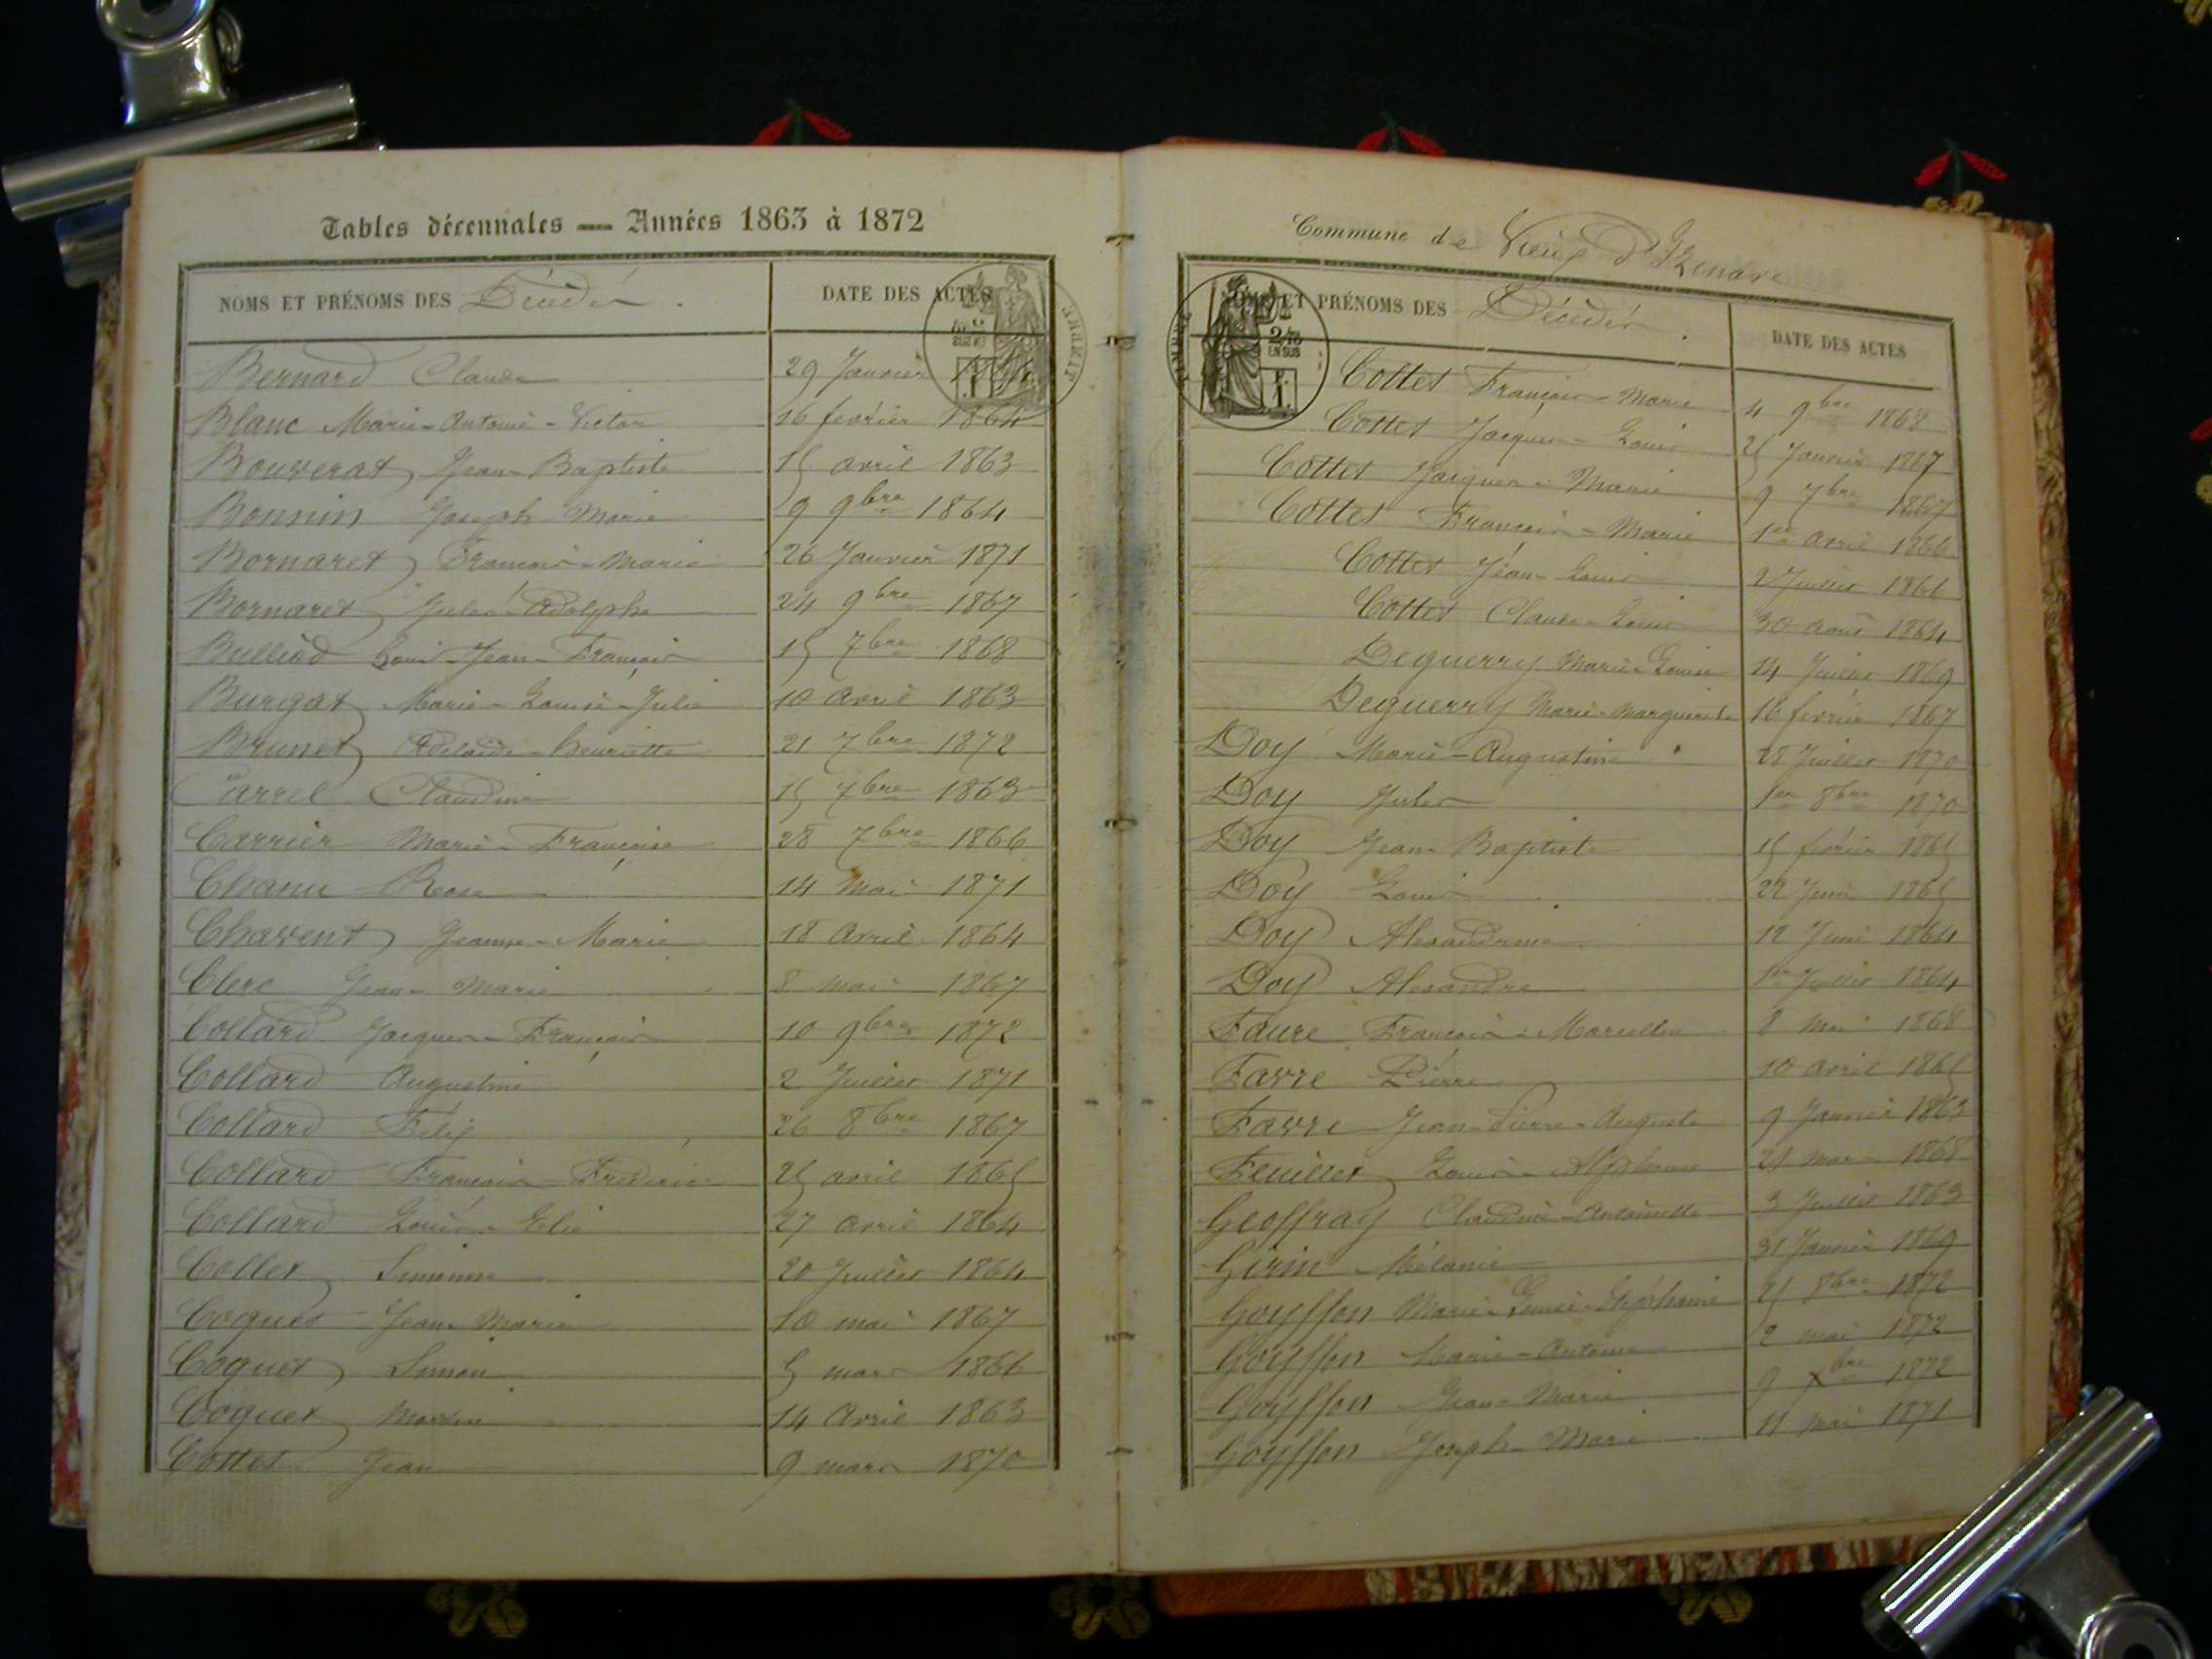 Tables décennales — Années 1863 à 1872
NOMS ET PRÉNOMS DES Décédés. DATE DES ACTES
Bernard Claude 29 Janvier
Blanc Marie-Antoine-Victor 16 février 1864
Bouverat Jean-Baptiste 15 avril 1863
Bonnin Joseph-Marie 9 9bre 1864
Bornaret François-Marie 26 Janvier 1871
Bornaret Jules-Adolphe 24 9bre 1867
Bulliod Louis-Jean-François 15 7bre 1868
Burgat Marie-Louise-Julie 10 avril 1863
Brunet Adélaïde-henriette 21 7bre 1872
Carrel Claudine 15 7bre 1863
Carrier Marie-Françoise 28 7bre 1866
Chanu Rose 14 mai 1871
Chavent Jeanne-Marie 18 avril 1864
Clerc Jean-Marie 8 mai 1867
Collard Jacques-François 10 9bre 1872
Collard Augustine 2 Juillet 1871
Collard Félix 26 8bre 1867
Collard François-Frédéric 25 avril 1865
Collard Louis-Elie 27 avril 1864
Collet Simonne 20 Juillet 1864
Coquet Jean-Marie 10 mai 1867
Coquet Simon 5 mars 1866
Coquet Martin 14 avril 1863
Cottet Jean 9 mars 1870
Commune de Vieux d'Izenave
NOMS ET PRÉNOMS DES Décédés. DATE DES ACTES
TIMBRE
2/10 EN SUS
Cottet François-Marie 4 9bre 1868
Cottet Jacques-Louis 25 Janvier 1867
Cottet Jacques-Marie 9 7bre 1867
Cottet François-Marie 1er avril 1866
Cottet Jean-Louis 2 Juillet 1866
Cottet Claude-Louis 30 août 1864
Deguerry Marie-Louise 14 1869
Deguerry Marie-Marguerite 16 février 1867
Doy Marie-Augustine 28 Juillet 1870
Doy Jules 1er 8bre 1870
Doy Jean-Baptiste 15 février 1865
Doy Louis 22 Juin 1865
Doy Alexandrine 12 Juin 1864
Doy Alexandre 1er Juillet 1864
Faure François-Marcellin 8 mai 1868
Favre Pierre 10 avril 1865
Favre Jean-Pierre-Auguste 9 Janvier 1863
Feuillet Louis-Alphonse 21 mars 1868
Geoffray Claudine-Antoinette 3 Juillet 1863
Girin Mélanie 31 Janvier 1869
Goyffon Marie-Louise-Stéphanie 25 8bre 1872
Goyffon Marie-Antoine 2 mai 1872
Goyffon Jean-Marie 9 xbre 1872
Goyffon Joseph-Marie 11 mai 1871